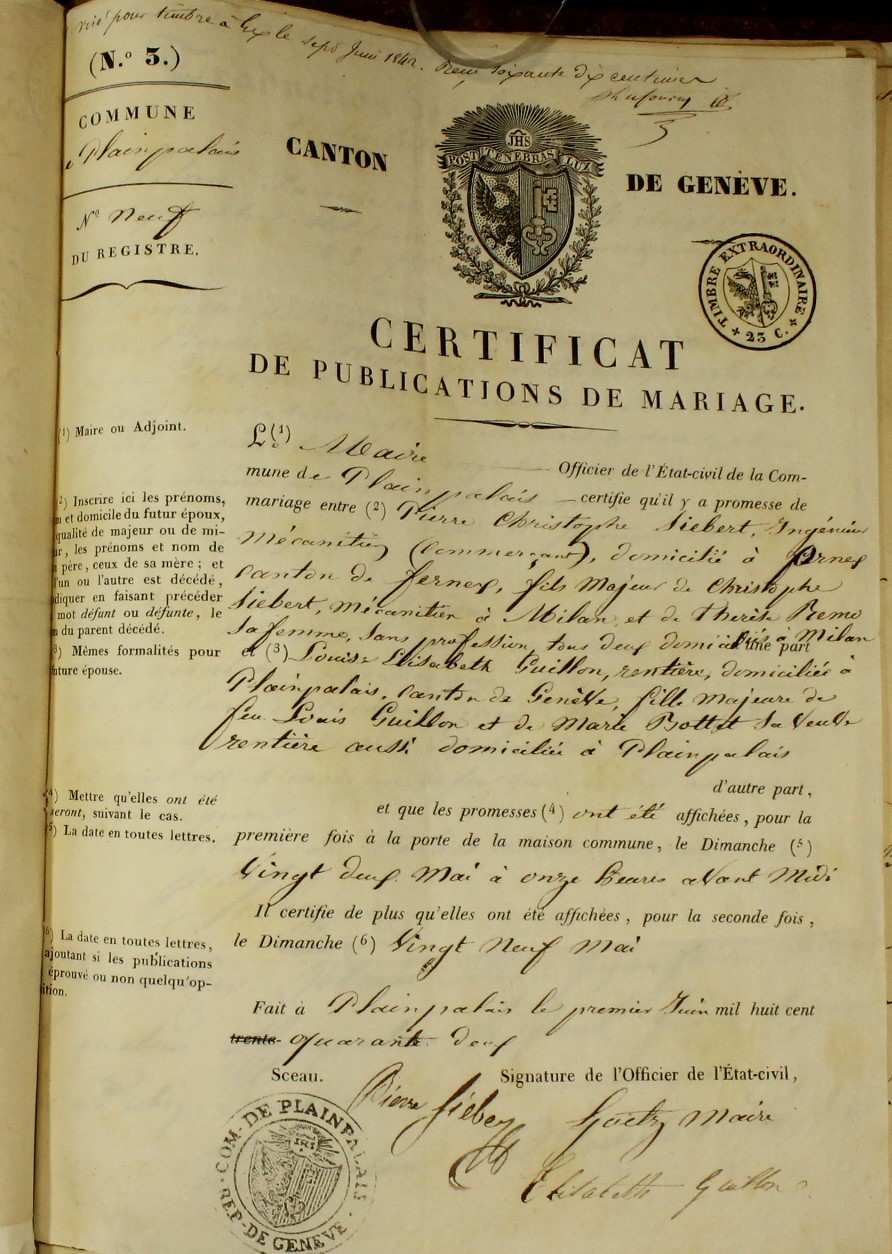 visé pour timbre à Gex le sept Juin 1842. Reçu soixante dix centimes
(N.º 3.)
COMMUNE
Plainpalais
Nº neuf
DU REGISTRE.
CANTON
DE GENÈVE.
JHS
POST TENEBRAS LUX
TIMBRE EXTRAORDINAIRE
23 C.
CERTIFICAT
DE PUBLICATIONS DE MARIAGE.
(1) Maire ou Adjoint.
2) Inscrire ici les prénoms,
et domicile du futur époux,
qualité de majeur ou de mi-
les prénoms et nom de
père, ceux de sa mère; et
l'un ou l'autre est décédé,
diquer en faisant précéder
mot défunt ou défunte, le
du parent décédé.
3) Mêmes formalités pour
future épouse.
4) Mettre qu'elles ont été
seront, suivant le cas.
5) La date en toutes lettres.
6) La date en toutes lettres,
ajoutant si les publications
éprouvé ou non quelqu'op-
ition.
Le (1) Maire Officier de l'État-civil de la Com-
mune de Plainpalais certifie qu'il y a promesse de
mariage entre (2) Pierre Christophe Siebert, Ingénieur
Mécanicien (Commerçant), domicilié à Fernex
Canton de Fernex, fils Majeur de Christophe
Siebert, Mécanicien à Milan et de Therèse Remo
Sa femme, Sans profession, tous deux domiciliés à Milan d'une part
et (3) Louise Elisabeth Guillon, rentière, domiciliée à
Plainpalais, Canton de Genève, fille majeure de
feu Louis Guillon et de Marie Bottet Sa Veuve
rentière aussi domiciliée à Plainpalais
d'autre part,
et que les promesses (4) ont été affichées, pour la
première fois à la porte de la maison commune, le Dimanche (5)
Vingt deux Mai à onze heures avant Midi
Il certifie de plus qu'elles ont été affichées, pour la seconde fois,
le Dimanche (6) Vingt neuf mai
Fait à Plainpalais le premier Juin mil huit cent
trente quarante deux
Sceau.
Signature de l'Officier de l'État-civil,
Pierre Siebert
Goetz Maire
Elisabeth Guillon
COM. DE PLAINPALAIS
REP. DE GENEVE